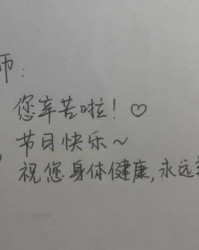 师：
您辛苦啦！♡
节日快乐～
祝您身体健康，永远